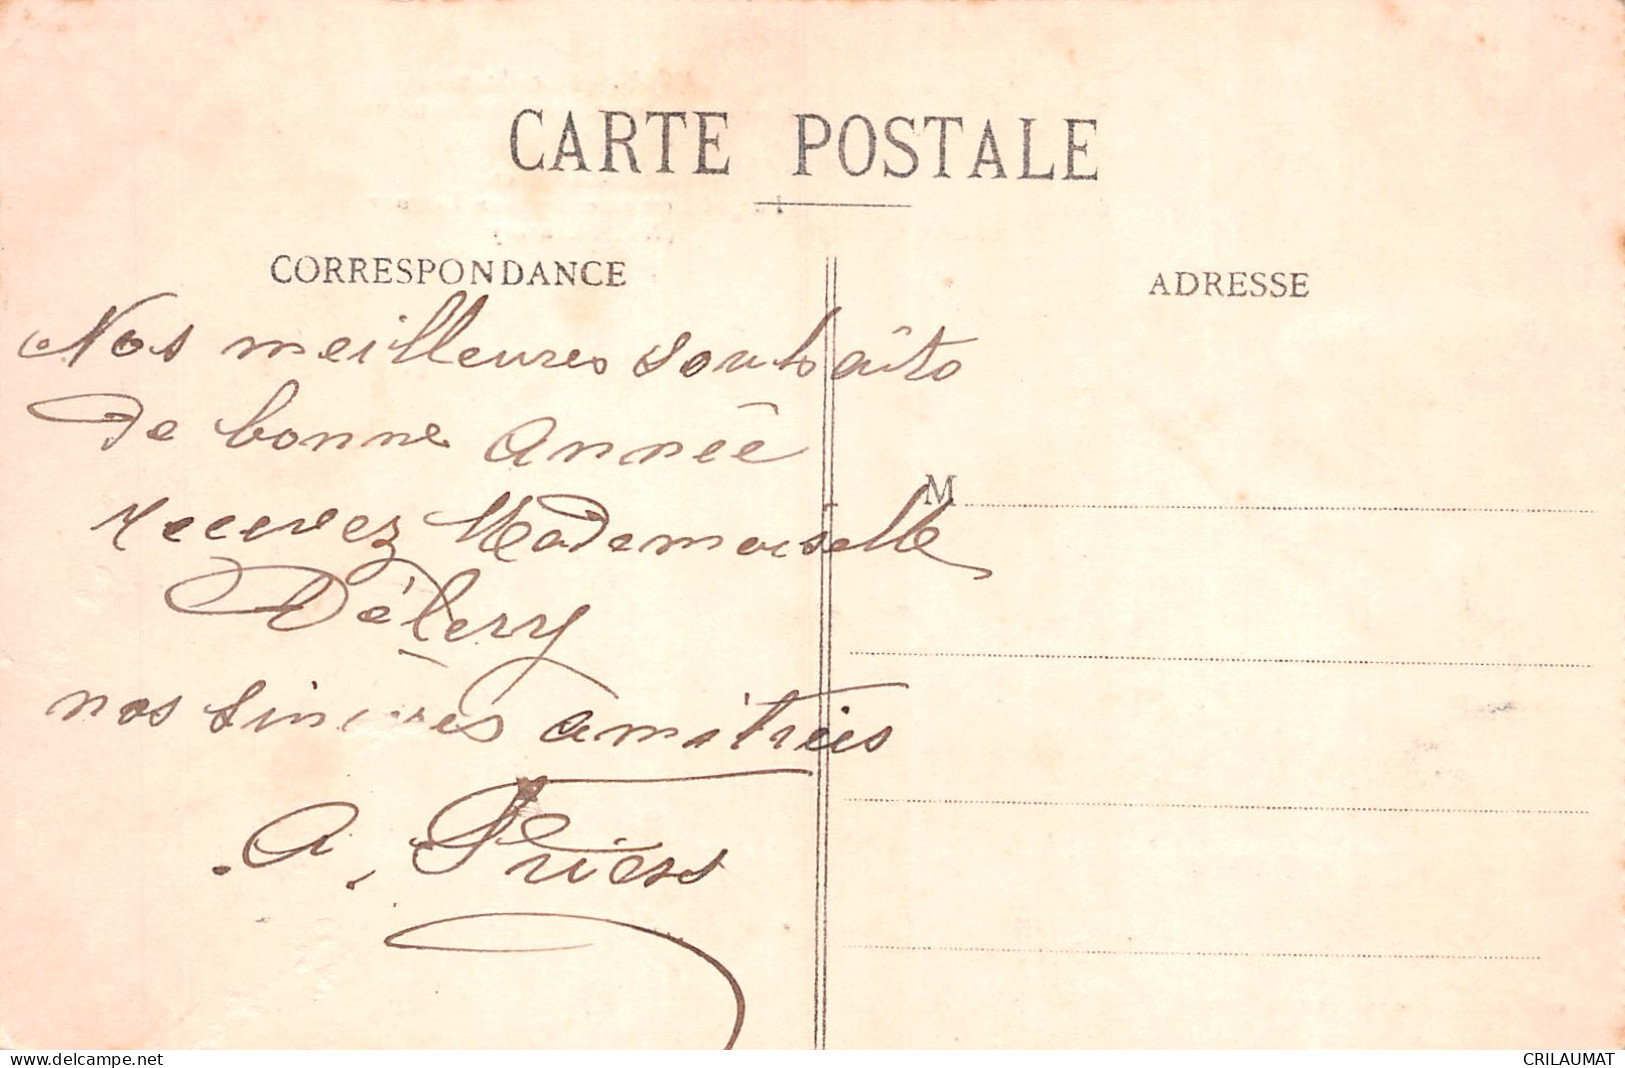 CARTE POSTALE
CORRESPONDANCE
ADRESSE
Nos meilleures souhaîts
de bonne Année
M
recevez Mademoiselle
Délery
nos sincères amitiéis
A. Friess
www.delcampe.net
CRILAUMAT